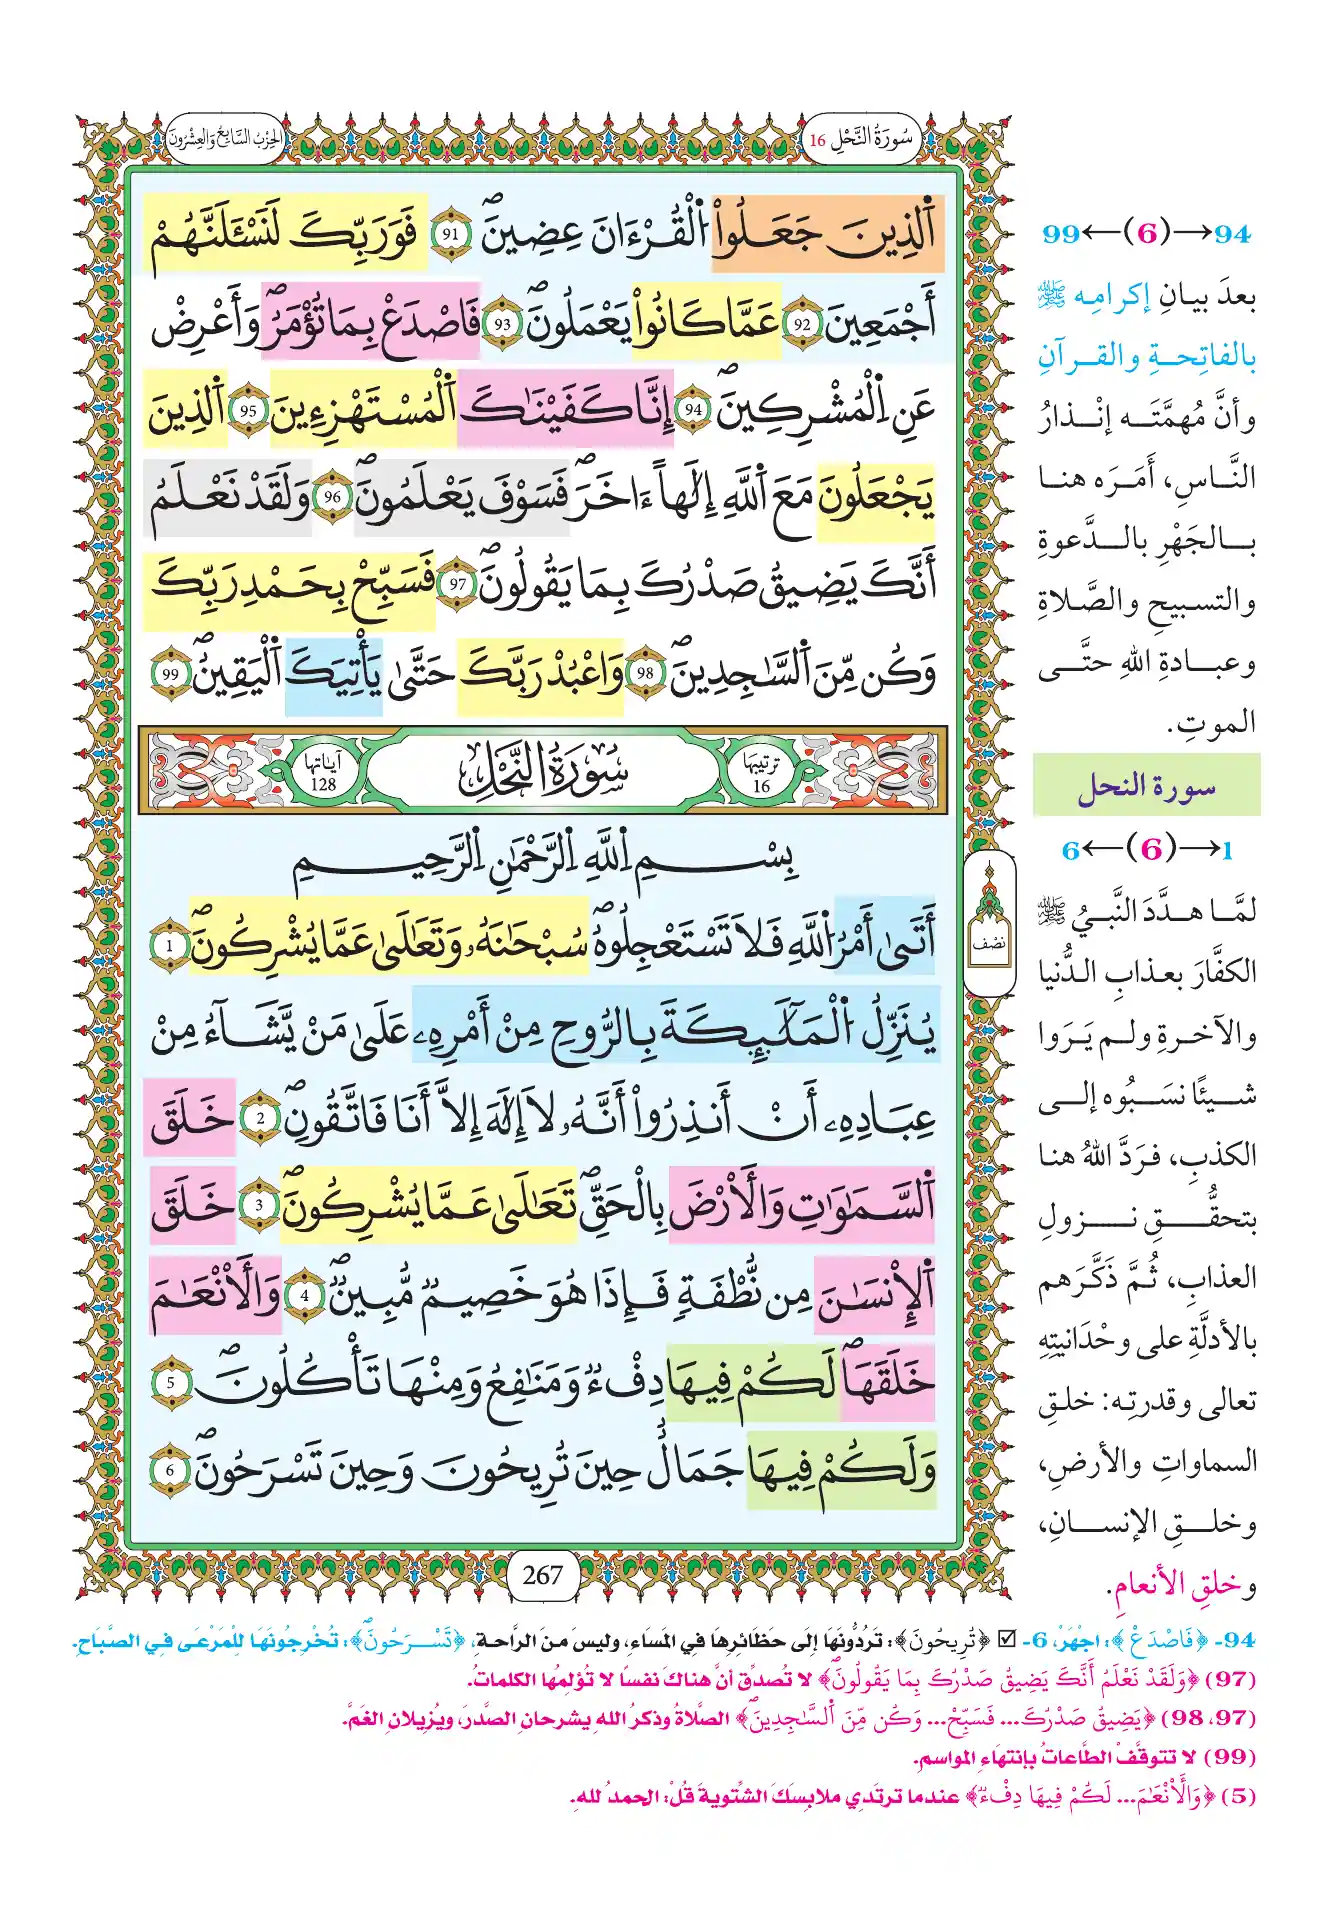 سُورَةُ النَّحْلِ 16
الحِزْبُ السَّابِعُ وَالعِشْرُونَ
اَ۬لذِينَ جَعَلُواْ اُ۬لْقُرْءَانَ عِضِينَۖ 91 فَوَرَبِّكَ لَنَسْـَٔلَنَّهُمْ
أَجْمَعِينَ 92 عَمَّا كَانُواْ يَعْمَلُونَۖ 93 فَاصْدَعْ بِمَا تُؤْمَرُۖ وَأَعْرِضْ
عَنِ اِ۬لْمُشْرِكِينَۖ 94 إِنَّا كَفَيْنَٰكَ اَ۬لْمُسْتَهْزِءِينَ 95 اَ۬لذِينَ
يَجْعَلُونَ مَعَ اَ۬للَّهِ إِلَٰهاً ءَاخَرَۖ فَسَوْفَ يَعْلَمُونَۖ 96 وَلَقَدْ نَعْلَمُ
أَنَّكَ يَضِيقُ صَدْرُكَ بِمَا يَقُولُونَۖ 97 فَسَبِّحْ بِحَمْدِ رَبِّكَ
وَكُن مِّنَ اَ۬لسَّٰجِدِينَۖ 98 وَاعْبُدْ رَبَّكَ حَتَّىٰ يَأْتِيَكَ اَ۬لْيَقِينُۖ 99
ترتيبها 16 سُورَةُ النَّحْلِ آياتها 128
بِسْمِ اِ۬للَّهِ اِ۬لرَّحْمَٰنِ اِ۬لرَّحِيمِ
أَتَىٰٓ أَمْرُ اُ۬للَّهِ فَلَا تَسْتَعْجِلُوهُۖ سُبْحَٰنَهُۥ وَتَعَٰلَىٰ عَمَّا يُشْرِكُونَۖ 1
يُنَزِّلُ اُ۬لْمَلَٰٓئِكَةَ بِالرُّوحِ مِنْ أَمْرِهِۦ عَلَىٰ مَنْ يَّشَآءُ مِنْ
عِبَادِهِۦٓ أَنْ أَنذِرُوٓاْ أَنَّهُۥ لَا إِلَٰهَ إِلَّا أَنَا فَاتَّقُونِۖ 2 خَلَقَ
اَ۬لسَّمَٰوَٰتِ وَالْأَرْضَ بِالْحَقِّۖ تَعَٰلَىٰ عَمَّا يُشْرِكُونَۖ 3 خَلَقَ
اَ۬لْإِنسَٰنَ مِن نُّطْفَةٍ فَإِذَا هُوَ خَصِيمٌ مُّبِينٌۖ 4 وَالْأَنْعَٰمَ
خَلَقَهَاۖ لَكُمْ فِيهَا دِفْءٌ وَمَنَٰفِعُ وَمِنْهَا تَأْكُلُونَۖ 5
وَلَكُمْ فِيهَا جَمَالٌ حِينَ تُرِيحُونَ وَحِينَ تَسْرَحُونَۖ 6
نصف
267
94→(6)←99
بعدَ بيانِ إكرامِه ﷺ
بالفاتِحةِ والقرآنِ
وأنَّ مُهمَّتَه إنْذارُ
النَّاسِ، أَمَرَه هنا
بالجَهْرِ بالدَّعوةِ
والتسبيحِ والصَّلاةِ
وعبادةِ اللهِ حتَّى
الموتِ.
سورة النحل
1→(6)←6
لمَّا هدَّدَ النَّبيُ ﷺ
الكفَّارَ بعذابِ الدُّنيا
والآخرةِ ولم يَرَوا
شيئًا نسَبُوه إلى
الكذبِ، فرَدَّ اللهُ هنا
بتحقُّقِ نزولِ
العذابِ، ثُمَّ ذَكَّرَهم
بالأدلَّةِ على وحْدَانيتِهِ
تعالى وقدرتِه: خلقِ
السماواتِ والأرضِ،
وخلقِ الإنسانِ،
وخلقِ الأنعامِ.
94- ﴿فَاصْدَعْ﴾: اجْهَرْ، 6- ☑ ﴿تُرِيحُونَ﴾: تَرُدُّونَهَا إِلَى حَظَائِرِهَا فِي المَسَاءِ، وليسَ مِنَ الرَّاحةِ، ﴿تَسْرَحُونَۖ﴾: تُخْرِجُونَهَا لِلْمَرْعَى فِي الصَّبَاحِ.
(97) ﴿وَلَقَدْ نَعْلَمُ أَنَّكَ يَضِيقُ صَدْرُكَ بِمَا يَقُولُونَۖ﴾ لا تُصدِّق أنَّ هناكَ نفسًا لا تُؤلِمُها الكلماتُ.
(97، 98) ﴿يَضِيقُ صَدْرُكَ... فَسَبِّحْ... وَكُن مِّنَ اَ۬لسَّٰجِدِينَۖ﴾ الصَّلاةُ وذكرُ اللهِ يشرحانِ الصدرَ، ويُزِيلانِ الغَمَّ.
(99) لا تتوقَّفْ الطَّاعاتُ بإنتهَاءِ المواسمِ.
(5) ﴿وَالْأَنْعَٰمَ... لَكُمْ فِيهَا دِفْءٌ﴾ عندما ترتَدِي ملابِسَكَ الشَّتويةَ قُلْ: الحمدُ للهِ.